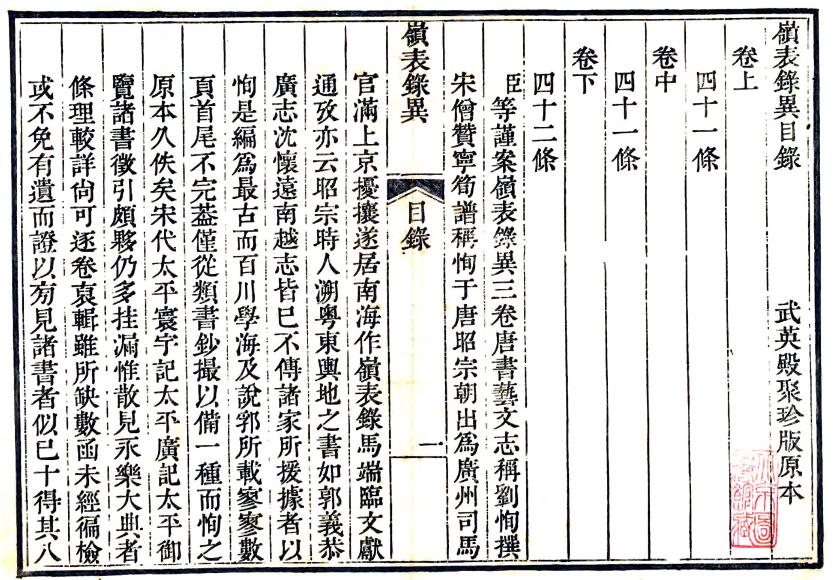 嶺表錄異目錄
武英殿聚珍版原本
卷上
四十一條
卷中
四十一條
卷下
四十二條
臣等謹案嶺表錄異三卷唐書藝文志稱劉恂撰
宋僧贊寧筍譜稱恂于唐昭宗朝出為廣州司馬
嶺表錄異
目錄
一
官滿上京擾攘遂居南海作嶺表錄馬端臨文獻
通攷亦云昭宗時人溯粵東輿地之書如郭義恭
廣志沈懷遠南越志皆已不傳諸家所援據者以
恂是編為最古而百川學海及說郛所載寥寥數
頁首尾不完葢僅從類書鈔撮以備一種而恂之
原本久佚矣宋代太平寰宇記太平廣記太平御
覽諸書徵引頗夥仍多挂漏惟散見永樂大典者
條理較詳尙可逐卷裒輯雖所缺數函未經徧檢
或不免有遺而證以菊見諸書者似已十得其八